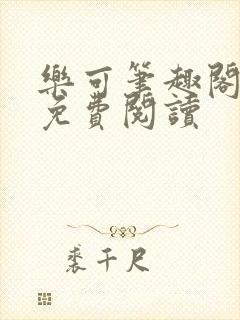 樂可筆趣閣
免費閱讀
裘千尺